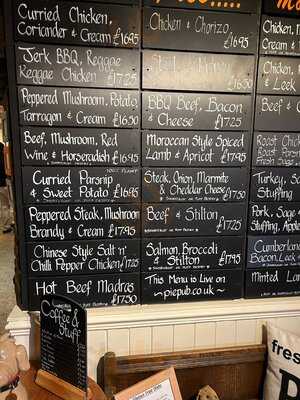 Curried Chicken,
Coriander & Cream £16.95
Jerk BBQ, Reggae
Reggae Chicken £17.25
Peppered Mushroom, Potato
Tarragon & Cream £16.50
Beef, Mushroom, Red
Wine & Horseradish £16.95
Curried Parsnip
& Sweet Potato £16.95
Peppered Steak, Mushroom
Brandy & Cream £17.95
Chinese Style Salt n'
Chilli Pepper Chicken £17.25
Hot Beef Madras
£17.50
Chicken
& Chorizo £16.95
BBQ Beef, Bacon
& Cheese £17.25
Moroccan Style Spiced
Lamb & Apricot £17.95
Steak, Onion, Marmite
& Cheddar Cheese £17.50
Beef & Stilton £17.25
Salmon, Broccoli
& Stilton £17.95
This Menu is Live on
~piepub.co.uk~
Chicken,
& Leek
Beef &
Roast
Roast
Fresh Sage
Turkey, S
Stuffing
Pork, Sage
Stuffing, App
Cumberlan
Bacon, Leek
Minted Lam
Coffee &
Stuff
fresh